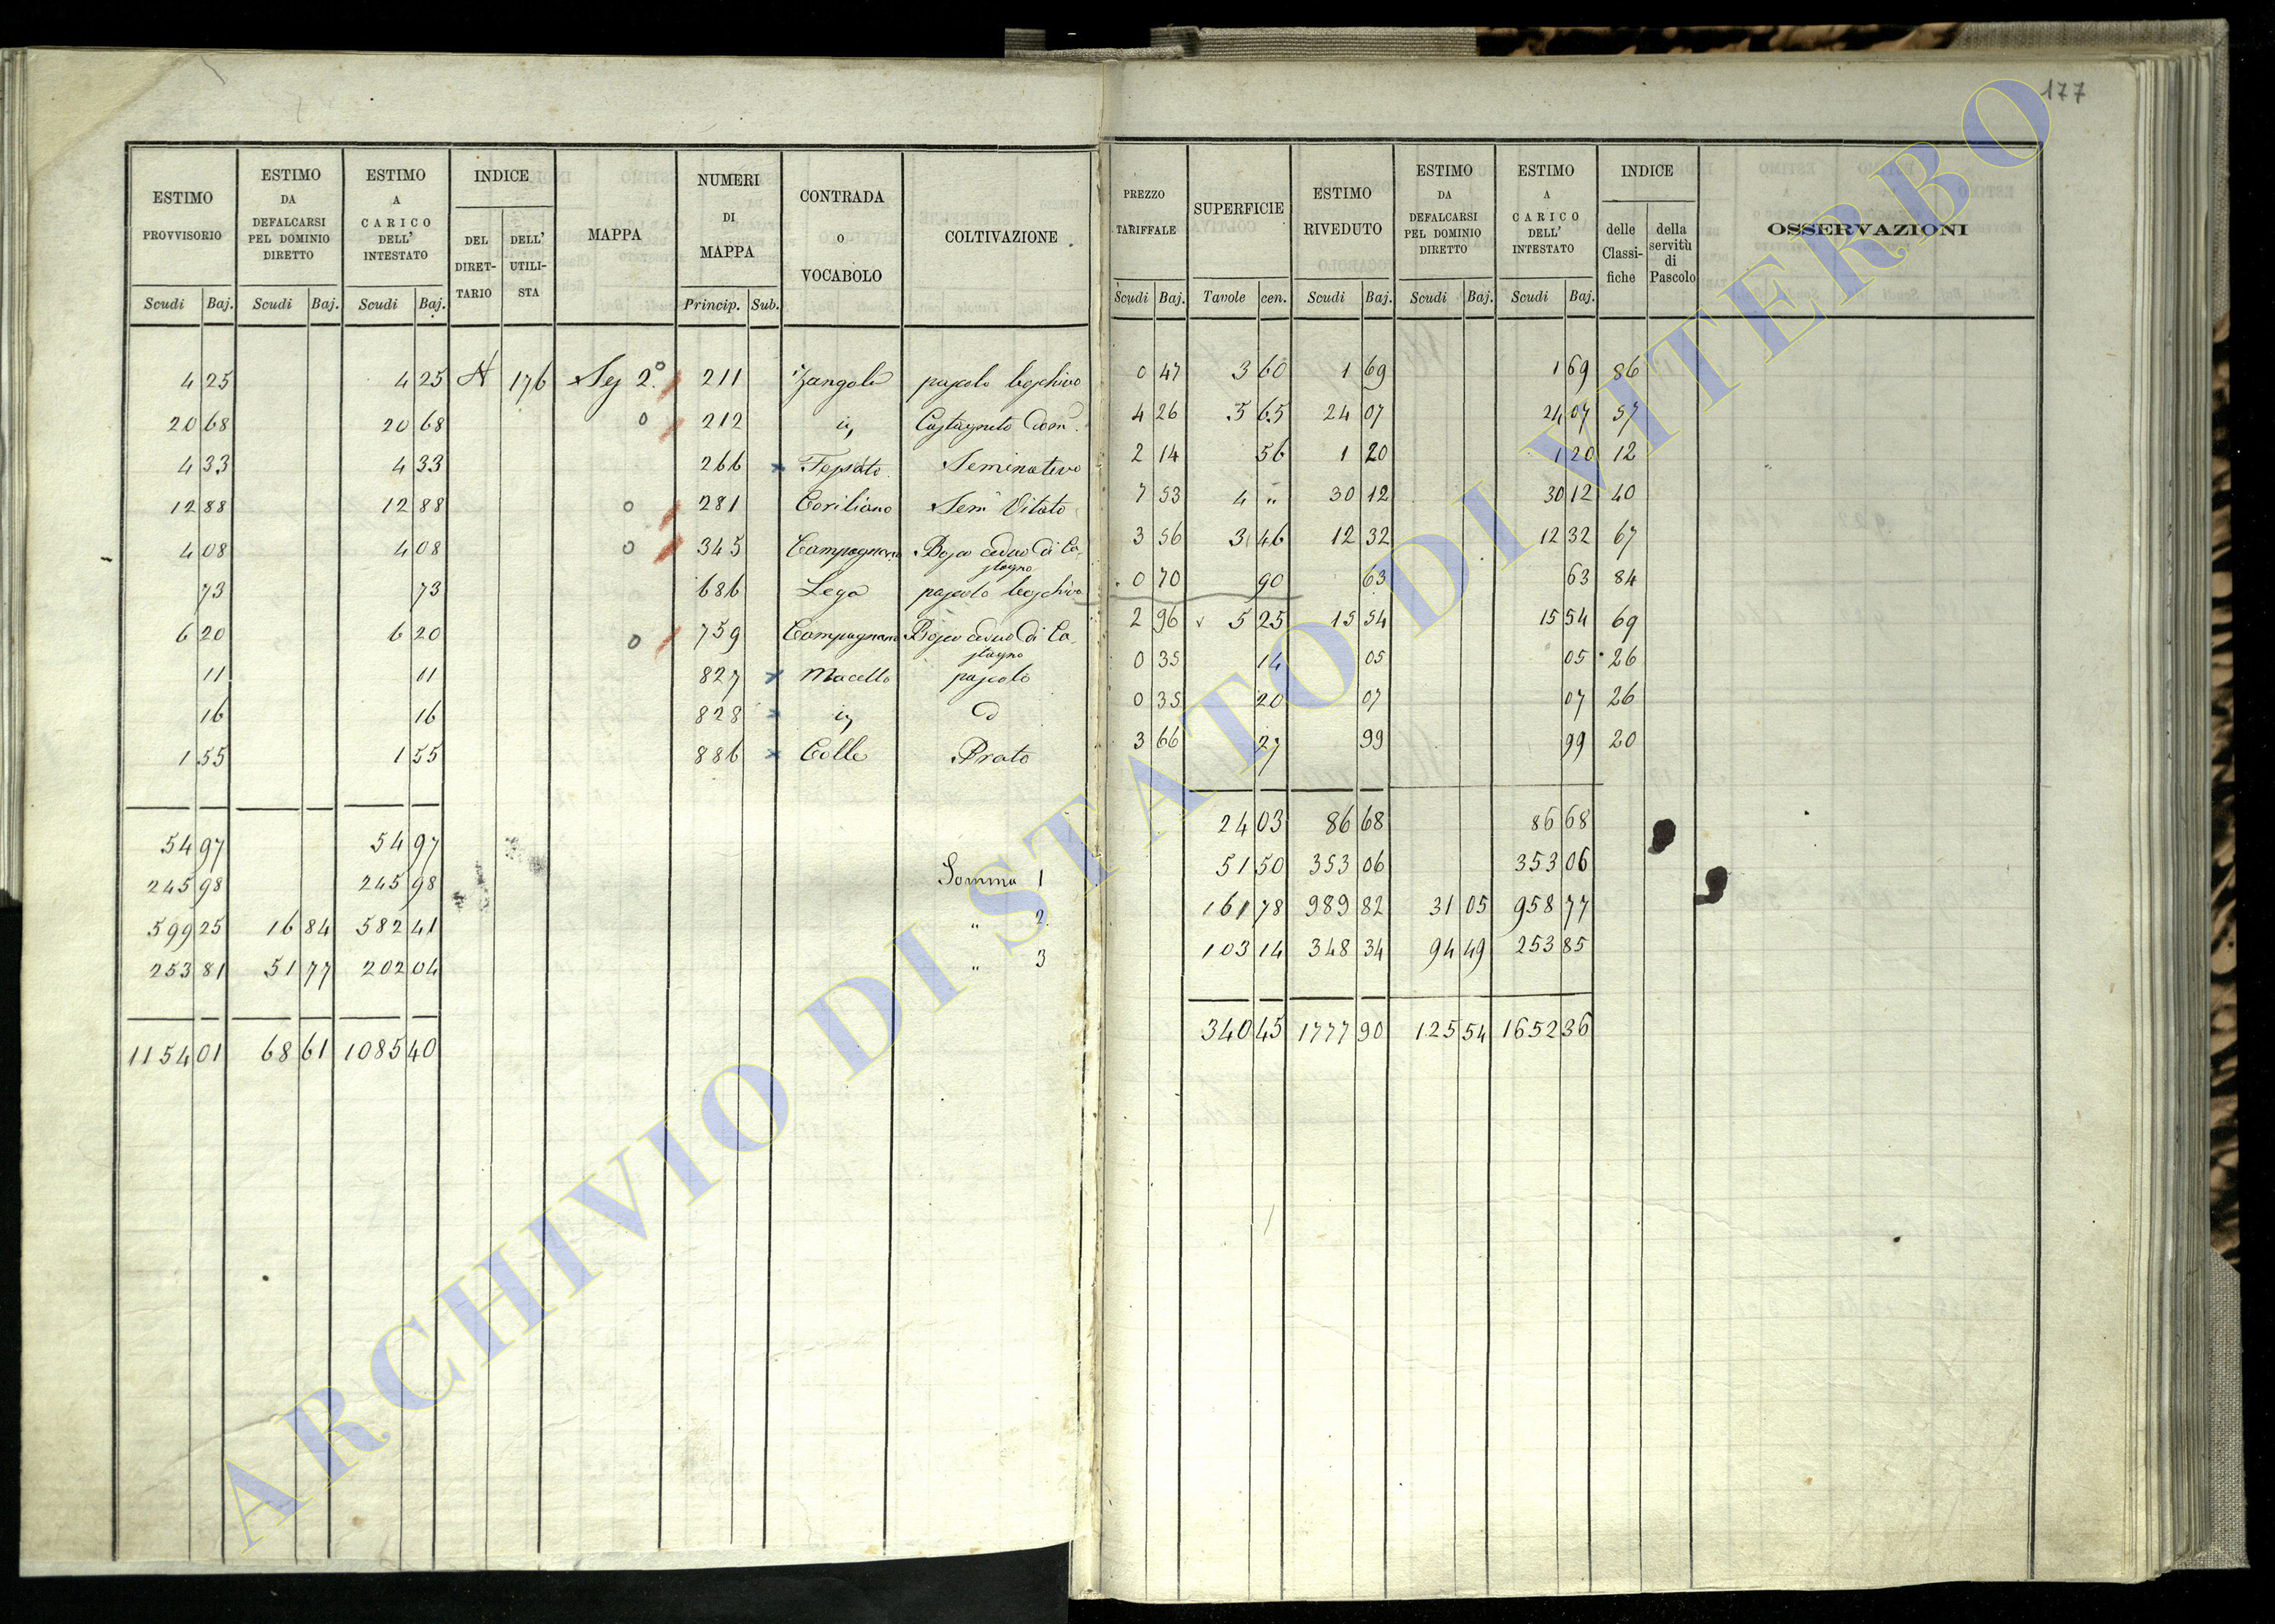 177
ESTIMO PROVVISORIO | ESTIMO DA DEFALCARSI PEL DOMINIO DIRETTO | ESTIMO A CARICO DELL' INTESTATO | INDICE DEL DIRETTARIO | DELL' UTILISTA | MAPPA | NUMERI DI MAPPA | CONTRADA o VOCABOLO | COLTIVAZIONE | PREZZO TARIFFALE | SUPERFICIE | ESTIMO RIVEDUTO | ESTIMO DA DEFALCARSI PEL DOMINIO DIRETTO | ESTIMO A CARICO DELL' INTESTATO | INDICE delle Classifiche | della servitù di Pascolo | OSSERVAZIONI
Scudi | Baj. | Scudi | Baj. | Scudi | Baj. | Princip. | Sub. | Scudi | Baj. | Tavole | cen. | Scudi | Baj. | Scudi | Baj. | Scudi | Baj.
4 25 | 4 25 | A | 176 | Sez 2° | 211 | Zangola | pascolo boschivo | 0 47 | 3 60 | 1 69 | 1 69 | 86
20 68 | 20 68 | 212 | | Castagneto | 4 26 | 5 65 | 24 07 | 24 07 | 57
4 33 | 4 33 | 266 | | Seminativo | 2 14 | 56 | 1 20 | 1 20 | 12
12 88 | 12 88 | 281 | Coriliano | Sem Vitato | 7 53 | 4 " | 30 12 | 30 12 | 40
4 08 | 4 08 | 345 | Campagnano | Bosco ceduo di Castagno | 3 56 | 3 46 | 12 32 | 12 32 | 67
73 | 73 | 686 | Lega | pascolo boschivo | 0 70 | 90 | 63 | 63 | 84
6 20 | 6 20 | 759 | Campagnano | Bosco ceduo di Castagno | 2 96 | 5 25 | 15 54 | 15 54 | 69
11 | 11 | 827 | Macello | pascolo | 0 35 | 14 | 05 | 05 | 26
16 | 16 | 828 | | | 0 35 | 20 | 07 | 07 | 26
1 55 | 1 55 | 886 | Colle | Prato | 3 66 | 27 | 99 | 99 | 20
54 97 | 54 97 | 24 03 | 86 68 | 86 68
245 98 | 245 98 | Somma 1 | 51 50 | 353 06 | 353 06
599 25 | 16 84 | 582 41 | " 2 | 161 78 | 989 82 | 31 05 | 958 77
253 81 | 51 77 | 202 04 | " 3 | 103 14 | 348 34 | 94 49 | 253 85
1154 01 | 68 61 | 1085 40 | 340 45 | 1777 90 | 125 54 | 1652 36
ARCHIVIO DI STATO DI VITERBO